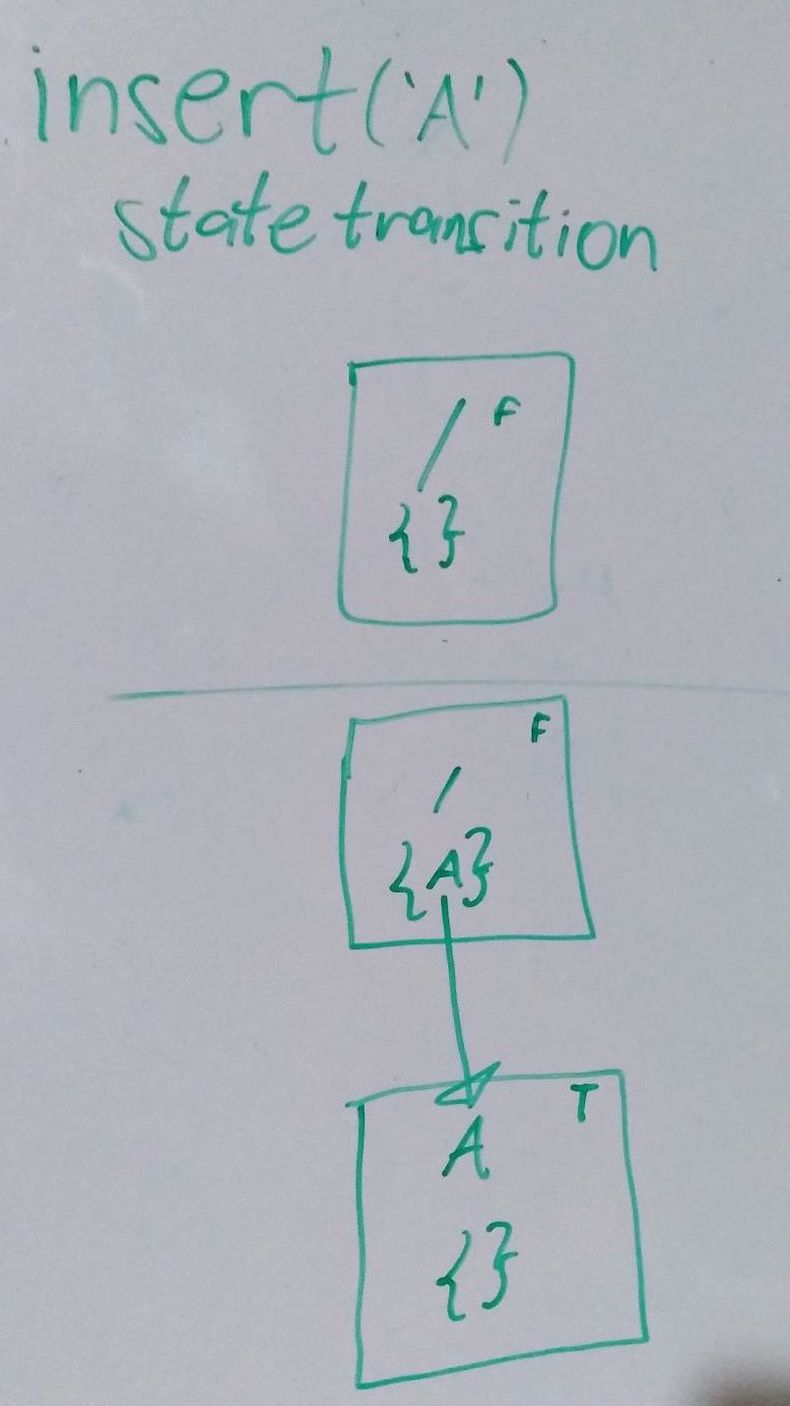 insert('A')
state transition
/ F
{}
F
/
{A}
T
A
{}